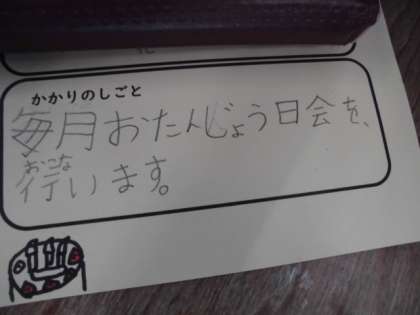 かかりのしごと
毎月おたんじょう日会を、
おこな
行います。